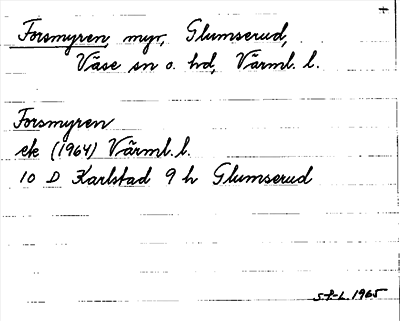 +
Forsmyren, myr, Glumserud,
Väse sn o. hd, Värml. l.
Forsmyren
ek (1964) Värml. l.
10 D Karlstad 9 h Glumserud
1965